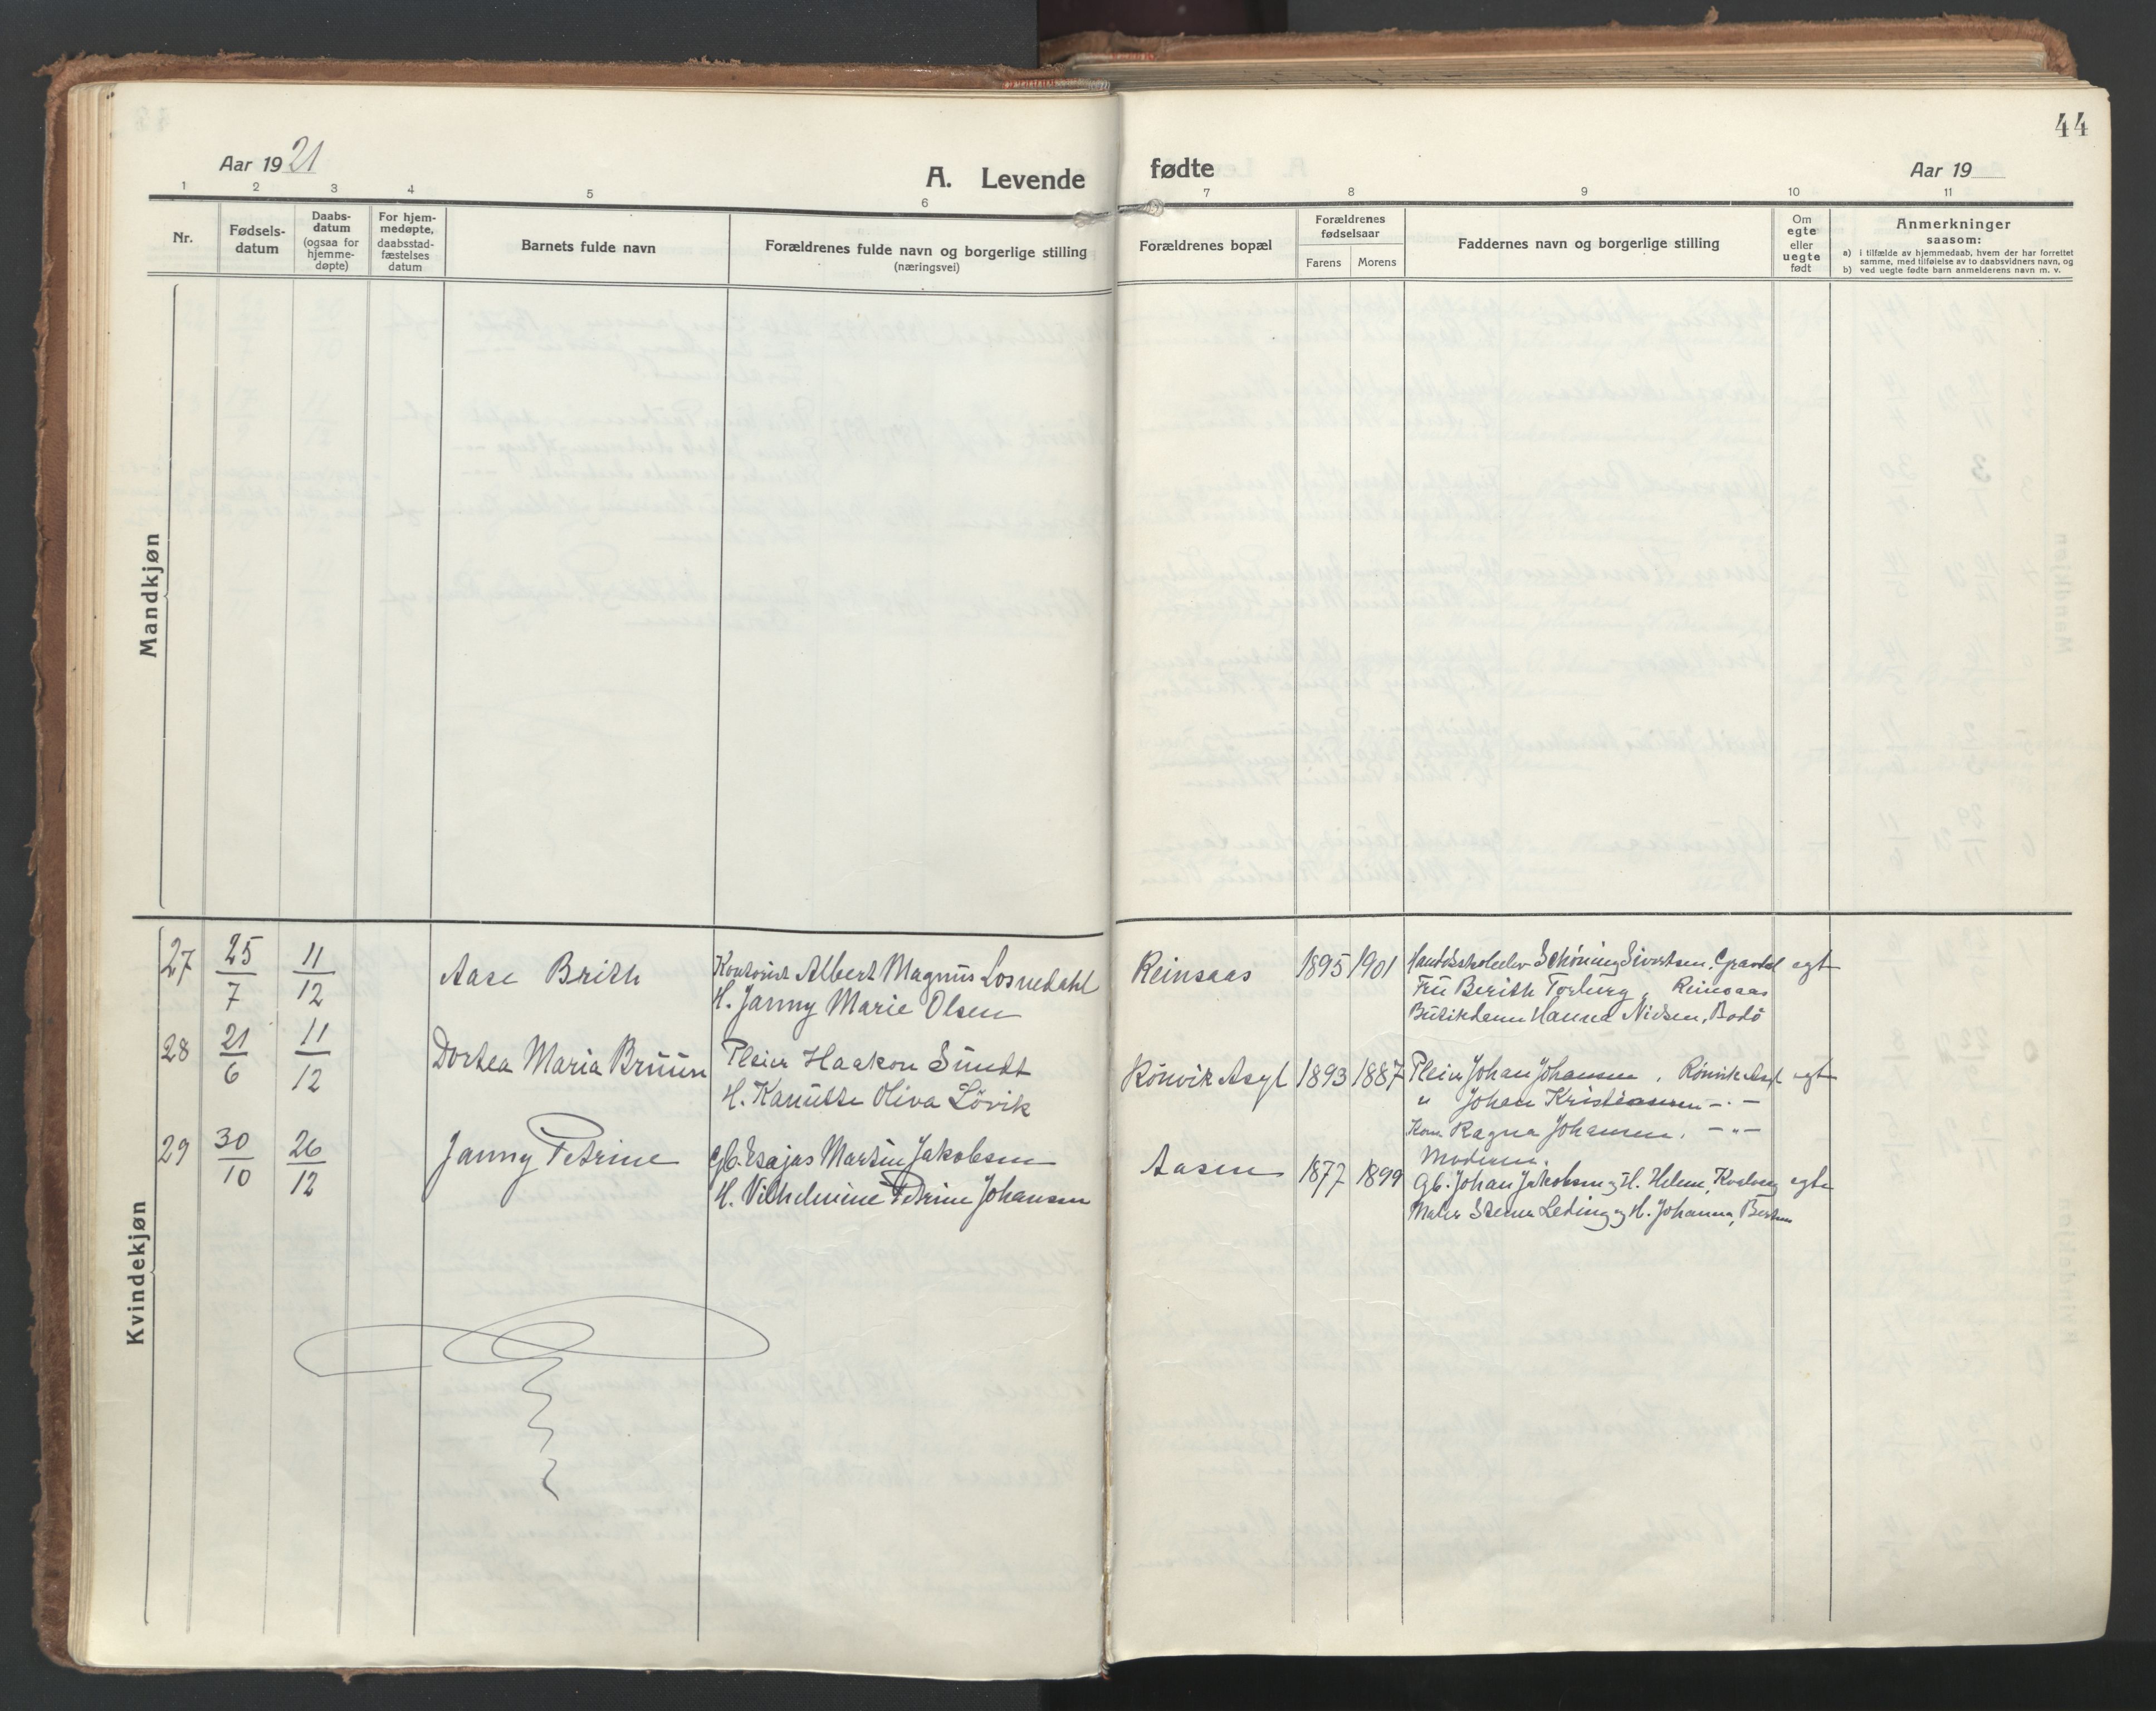 44
Aar 1921
A. Levende fødte
Aar 19
1 2 3 4 5 6 7 8 9 10 11
Nr.
Fødsels-
datum
Daabs-
datum
(ogsaa for
hjemme-
døpte)
For hjem-
medøpte,
daabsstad-
fæstelses
datum
Barnets fulde navn
Forældrenes fulde navn og borgerlige stilling
(næringsvei)
Forældrenes bopæl
Forældrenes
fødselsaar
Farens Morens
Faddernes navn og borgerlige stilling
Om
egte
eller
uegte
født
Anmerkninger
saasom:
a) i tilfælde av hjemmedaab, hvem der har forrettet
samme, med tilføielse av to daabsvidners navn, og
b) ved uegte fødte barn anmelderens navn m. v.
Mandkjøn
Kvindekjøn
27 25/7 11/12 Aase Brith
Kontorist Albert Magnus Losnedahl
H. Janny Marie Olsen
Reinsaas 1895 1901
Handelsskoleelev Schøning Sivertsen, egte
Fru Berith Torberg, Reinsaas
Hanna Nielsen, Bodø
28 21/6 11/12 Dortea Maria Bruun
Pleier Haakon Sundt
H. Kanutte Oliva Løvik
Rønvik Asyl 1893 1887
Pleier Johan Johansen, Rønvik Asyl egte
" Johan Kristiansen - " -
Kone Ragna Johansen, - " -
Moderen.
29 30/10 26/12 Janny Petrine
Gb. Esajas Martin Jakobsen
H. Vilhelmine Petrine Johansen
Aasen 1877 1899
Gb. Johan Jakobsen og H. Helene, egte
Maler Leding og H. Johanna,